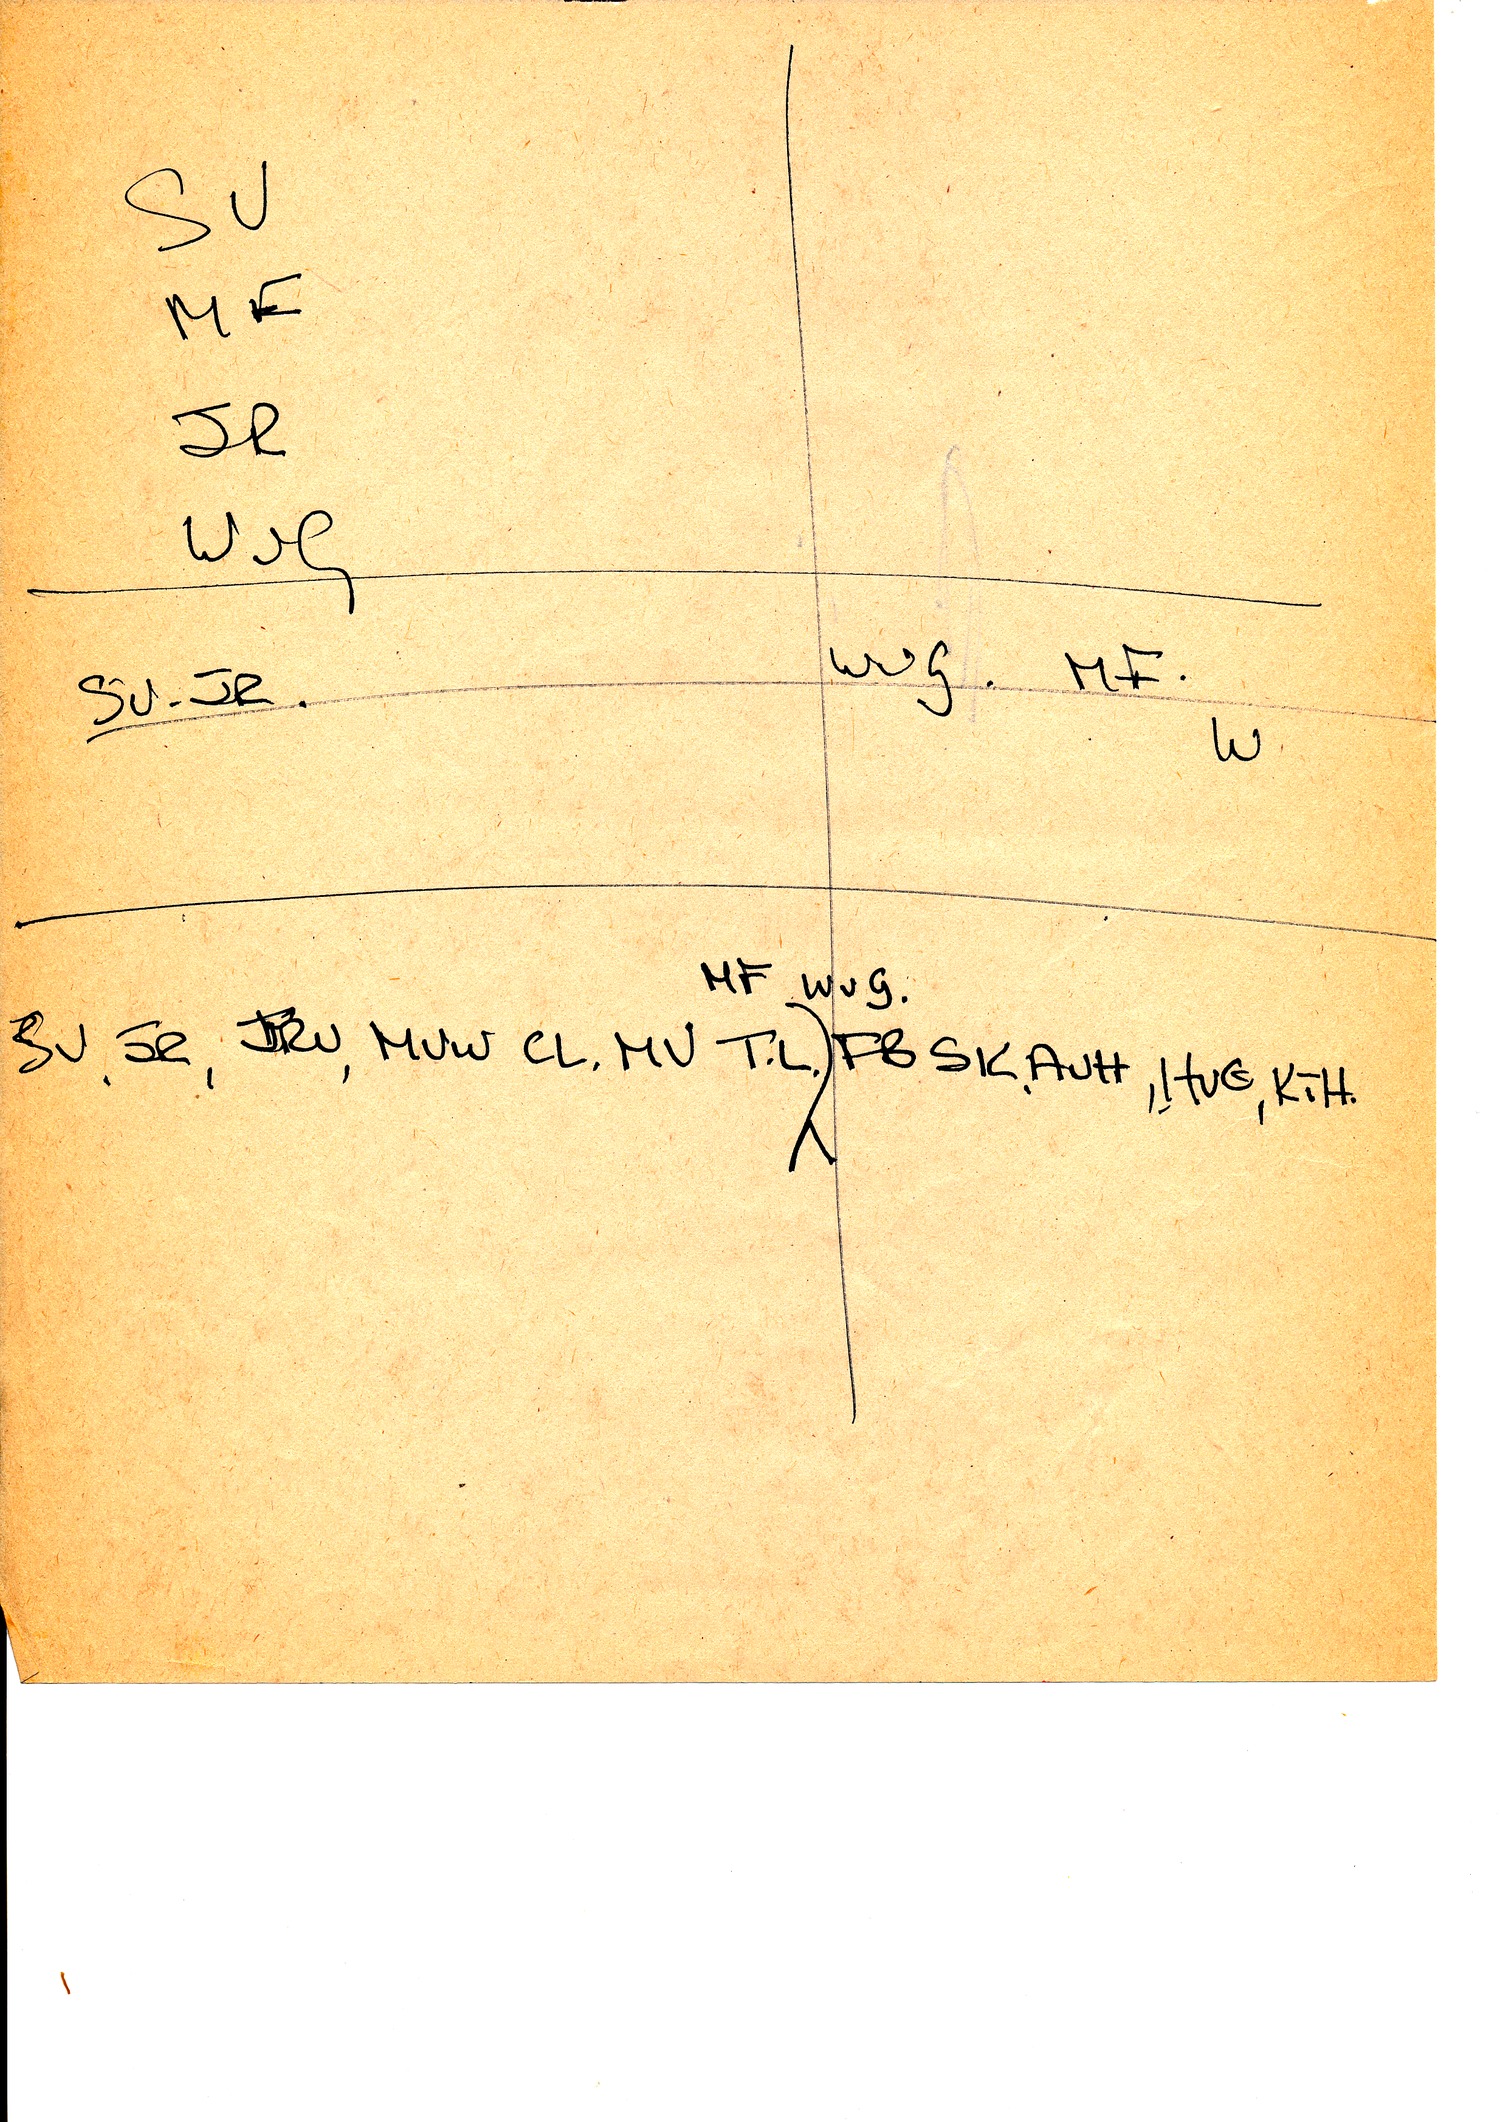 SV
MF
JR
WvG
SV. JR.
WvG. MF.
W
MF WvG.
SV, JR, JRV, MVW CL. MV T.L. FB SK, AvH, HvE, K.H.